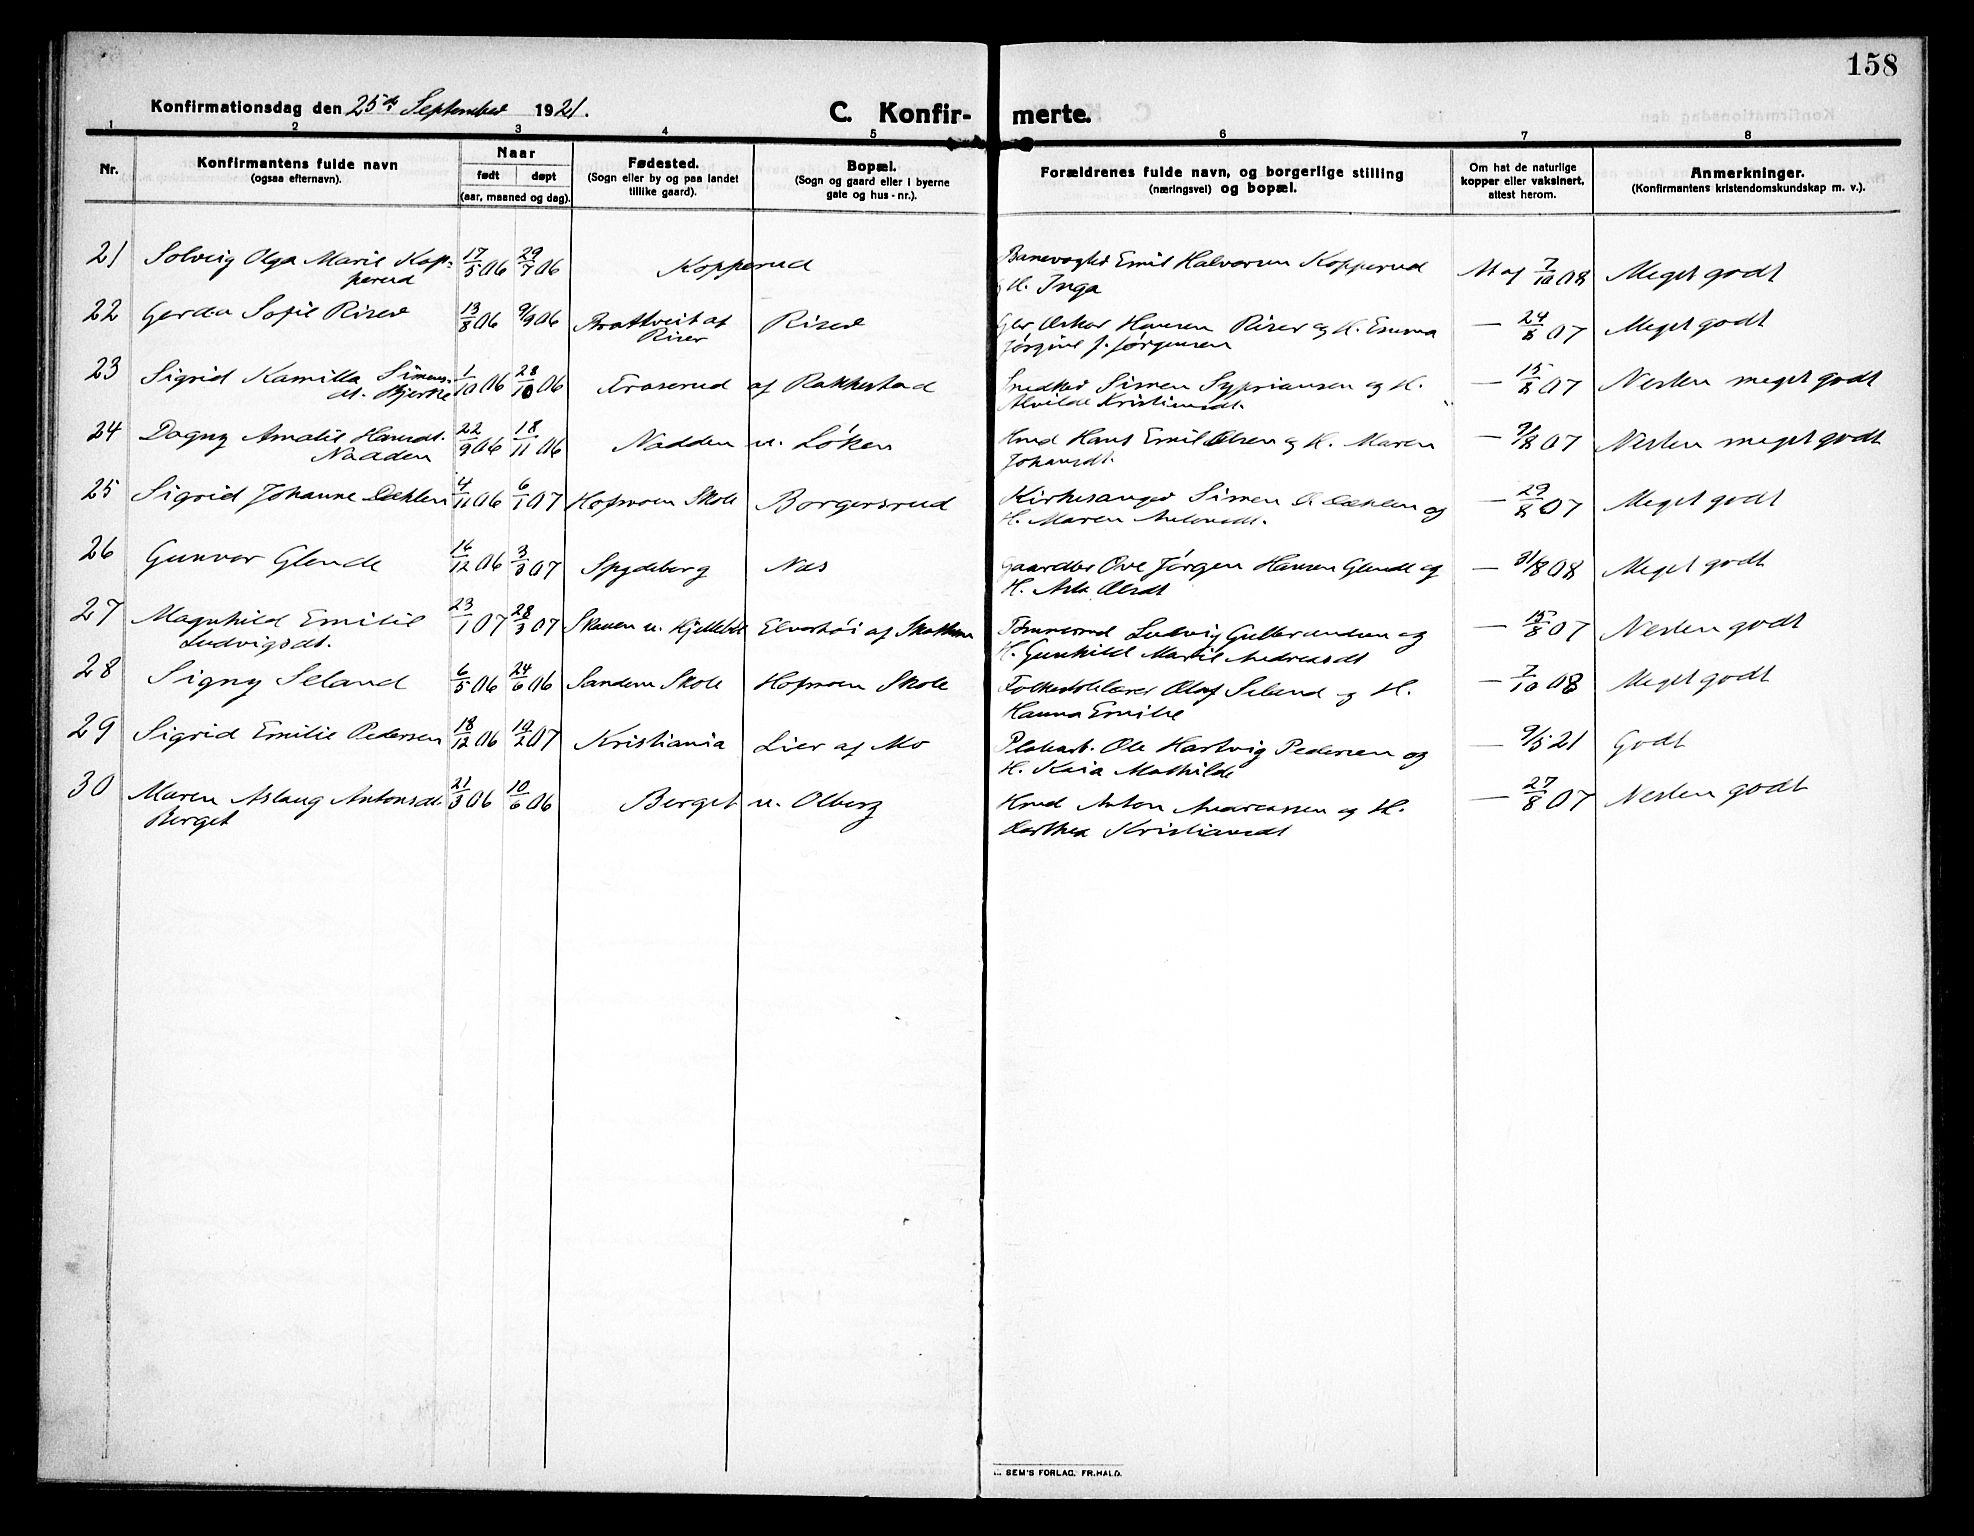 158
Konfirmationsdag den 25de September 1921.
C. Konfir- merte.
1 2 3 4 5 6 7 8
Nr.
Konfirmantens fulde navn
(ogsaa efternavn).
Naar
født døpt
(aar, maaned og dag).
Fødested.
(Sogn eller by og paa landet
tillike gaard).
Bopæl.
(Sogn og gaard eller i byerne
gate og hus-nr.).
Forældrenes fulde navn, og borgerlige stilling
(næringsvei) og bopæl.
Om hat de naturlige
kopper eller vaksinert,
attest herom.
Anmerkninger.
(Konfirmantens kristendomskundskap m. v.).
21 Solveig Olga Marie Kop- 17/5 06 29/7 06 Kopperud Banevogter Emil Halvorsen Kopperud At af 7/10 08 Meget godt
perud H. Inga
22 Gerda Sofie Riser 13/8 06 9/9 06 Brattveit af Riser Gbr Oskar Hansen Riser og H. Emma — 24/8 07 Meget godt
Riser Jørgine f. Jørgensen
23 Sigrid Kamilla Simens- 1/10 06 28/10 06 Fraserud af Rakkestad Snedker Simen Sypriansen og H. — 15/8 07 Nesten meget godt
dt. Bjerke Alvilde Kristiansdt.
24 Dagny Amalie Hansdt. 22/9 06 18/11 06 Nadden u. Løken Hmd Hans Emil Olsen og H. Maren — 9/8 07 Nesten meget godt
Nadden Johansdt.
25 Sigrid Johanne Dæhlen 4/11 06 6/1 07 Hofmoen Skole Borgersrud Kirkesanger Simen O. Dæhlen og — 29/8 07 Meget godt
H. Maren Antonsdt.
26 Gunvor Glende 16/12 06 3/3 07 Spydeberg Næs Gaardbr Ove Jørgen Hansen Glende og — 31/8 08 Meget godt
H. Olsdt
27 Magnhild Emilie 23/1 07 28/3 07 Skauen u. Elvestøi af Tømmermd Ludvig Gulbrandsen og — 15/8 07 Nesten godt
Ludvigsdt. H. Gunhild Marie Andreasdt
28 Signy Seland 6/5 06 24/6 06 Sandem Skole Hofmoen Skole Folkeskolelærer Olaf Seland og H. — 7/10 08 Meget godt
Hanna Emilie
29 Sigrid Emilie Pedersen 18/12 06 10/2 07 Kristiania Lier af Mo Ole Hartvig Pedersen og — 9/5 21 Godt
H. Kaia Mathilde
30 Maren Aslaug Antonsdt. 21/3 06 10/6 06 Berget u. Olberg Hmd Anton Andreassen og H. — 27/8 07 Nesten godt
Berget Dorthea Kristiansdt
SEM'S FORLAG, FR.HALD.